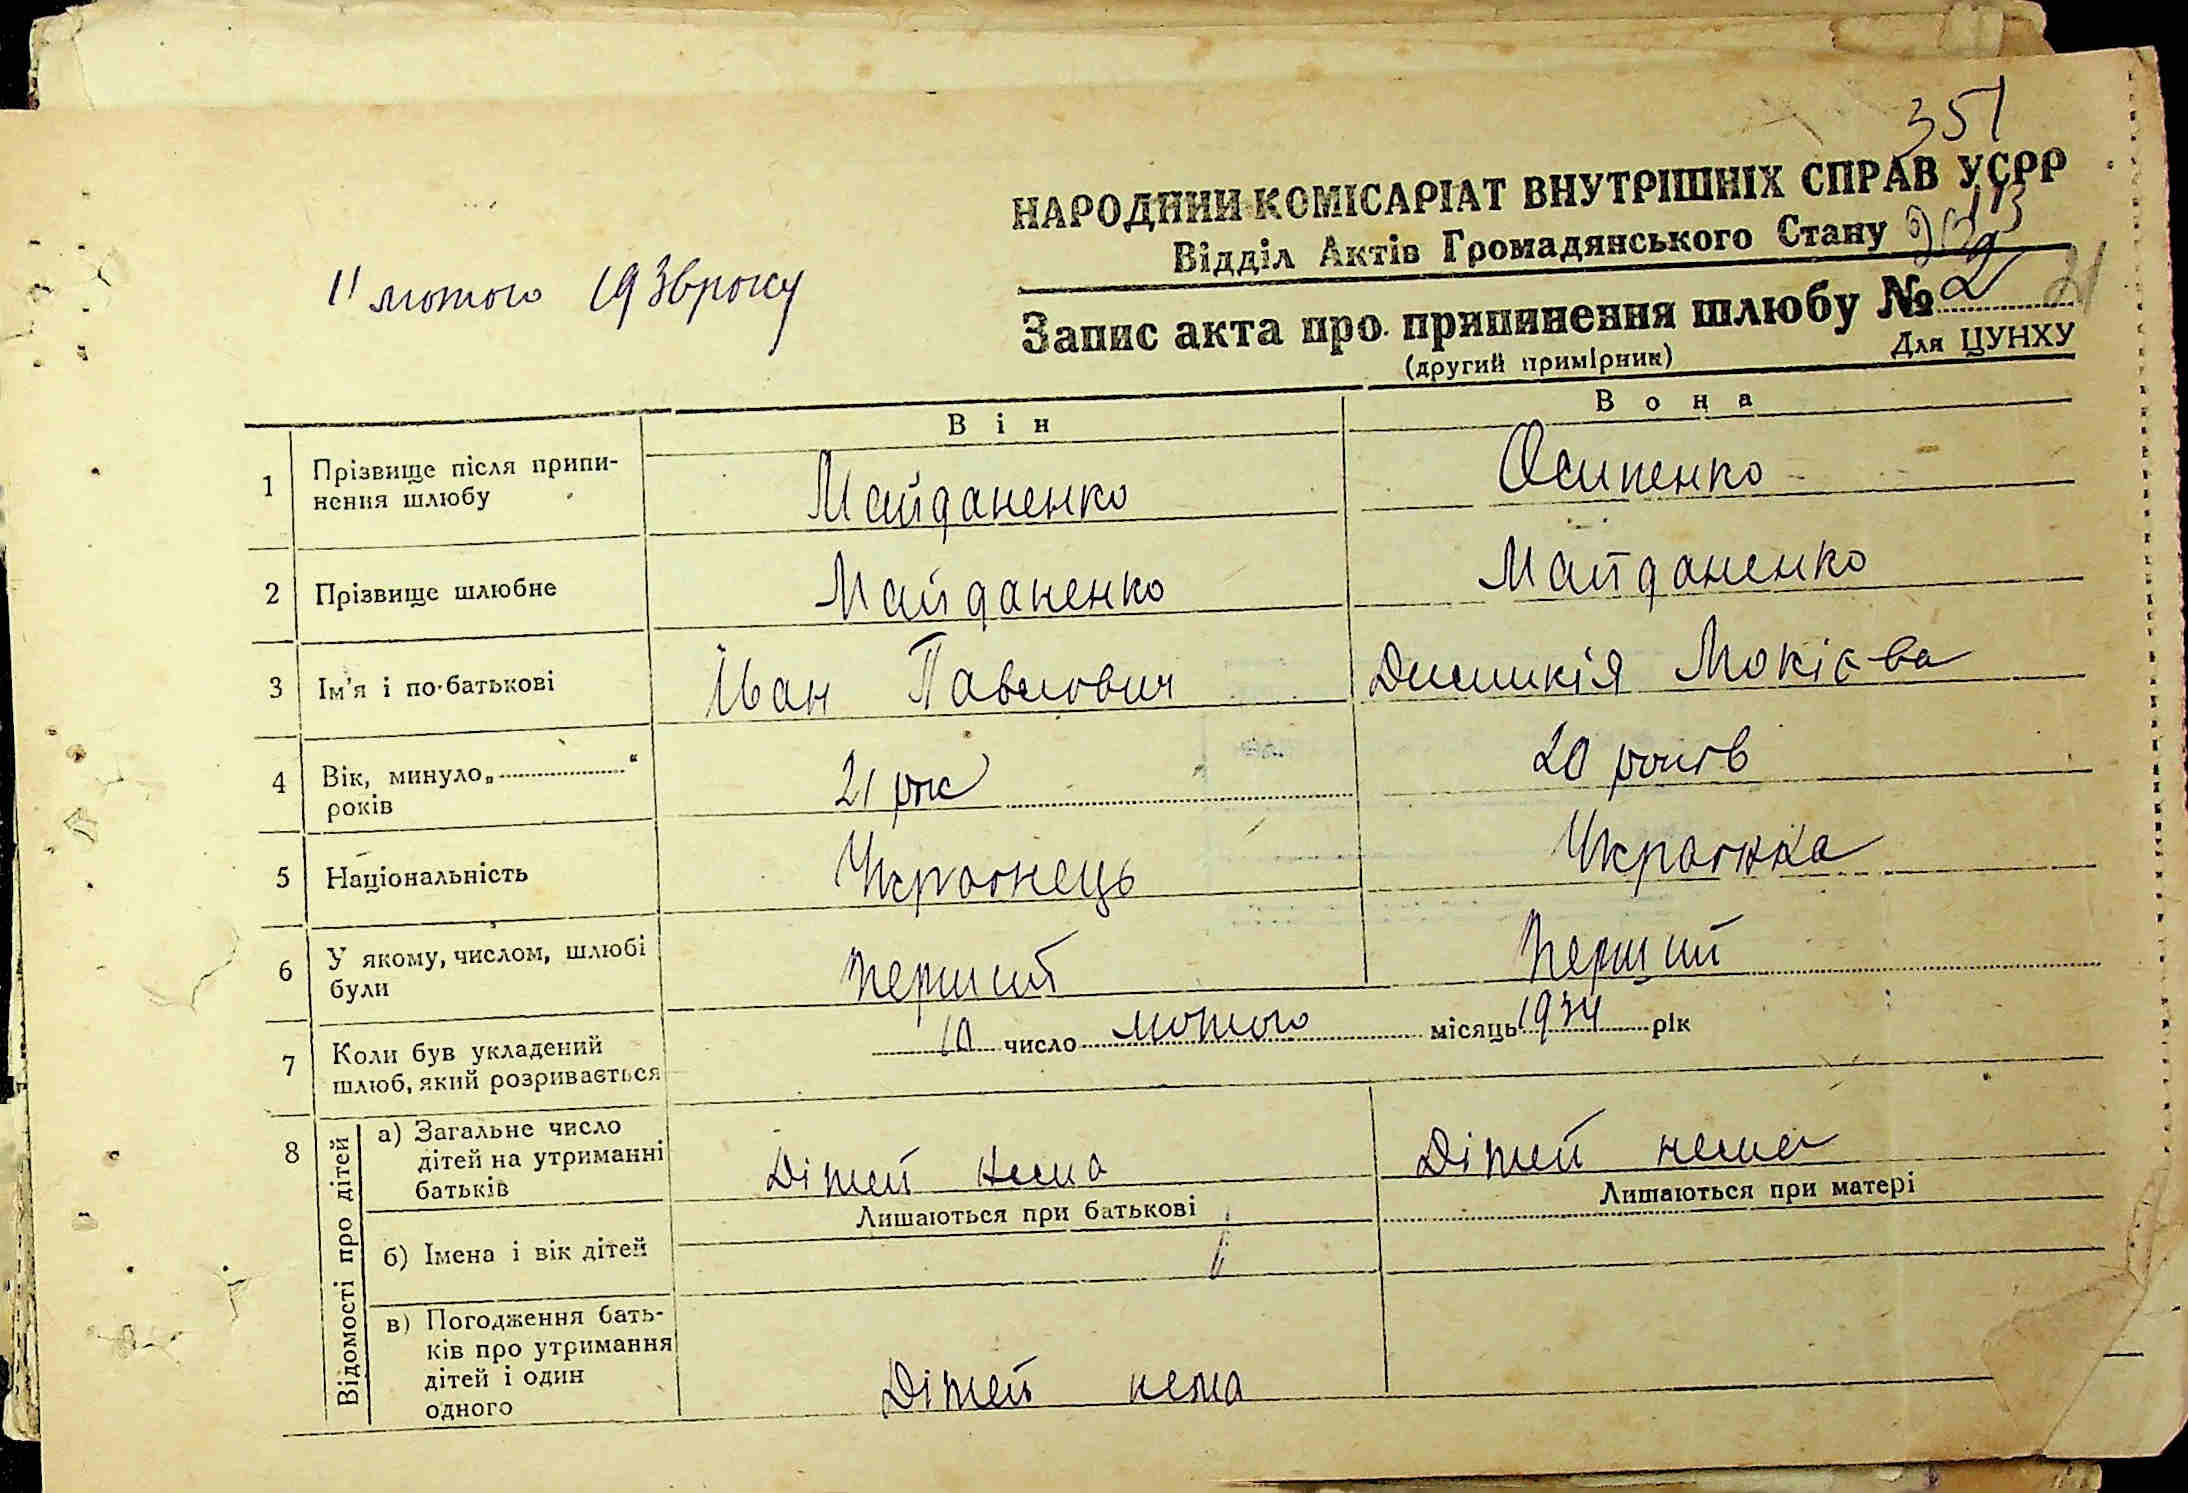 351
НАРОДНИЙ КОМІСАРІАТ ВНУТРІШНІХ СПРАВ УСРР
Відділ Актів Громадянського Стану
11 лютого 1936 року
Запис акта про припинення шлюбу № 2
21
(другий примірник) Для ЦУНХУ
Він Вона
1 Прізвище після припи-
нення шлюбу Майданенко Осипенко
2 Прізвище шлюбне Майданенко Майданенко
3 Ім'я і по-батькові Іван Павлович Мокієва
4 Вік, минуло „ “
років 21 рік 20 років
5 Національність Українець Українка
6 У якому, числом, шлюбі
були перший перший
7 Коли був укладений
шлюб, який розривається 10 число лютого місяць 1934 рік
8 Відомості про дітей
а) Загальне число
дітей на утриманні
батьків Дітей нема Дітей нема
Лишаються при батькові Лишаються при матері
б) Імена і вік дітей
в) Погодження бать-
ків про утримання
дітей і один
одного Дітей нема